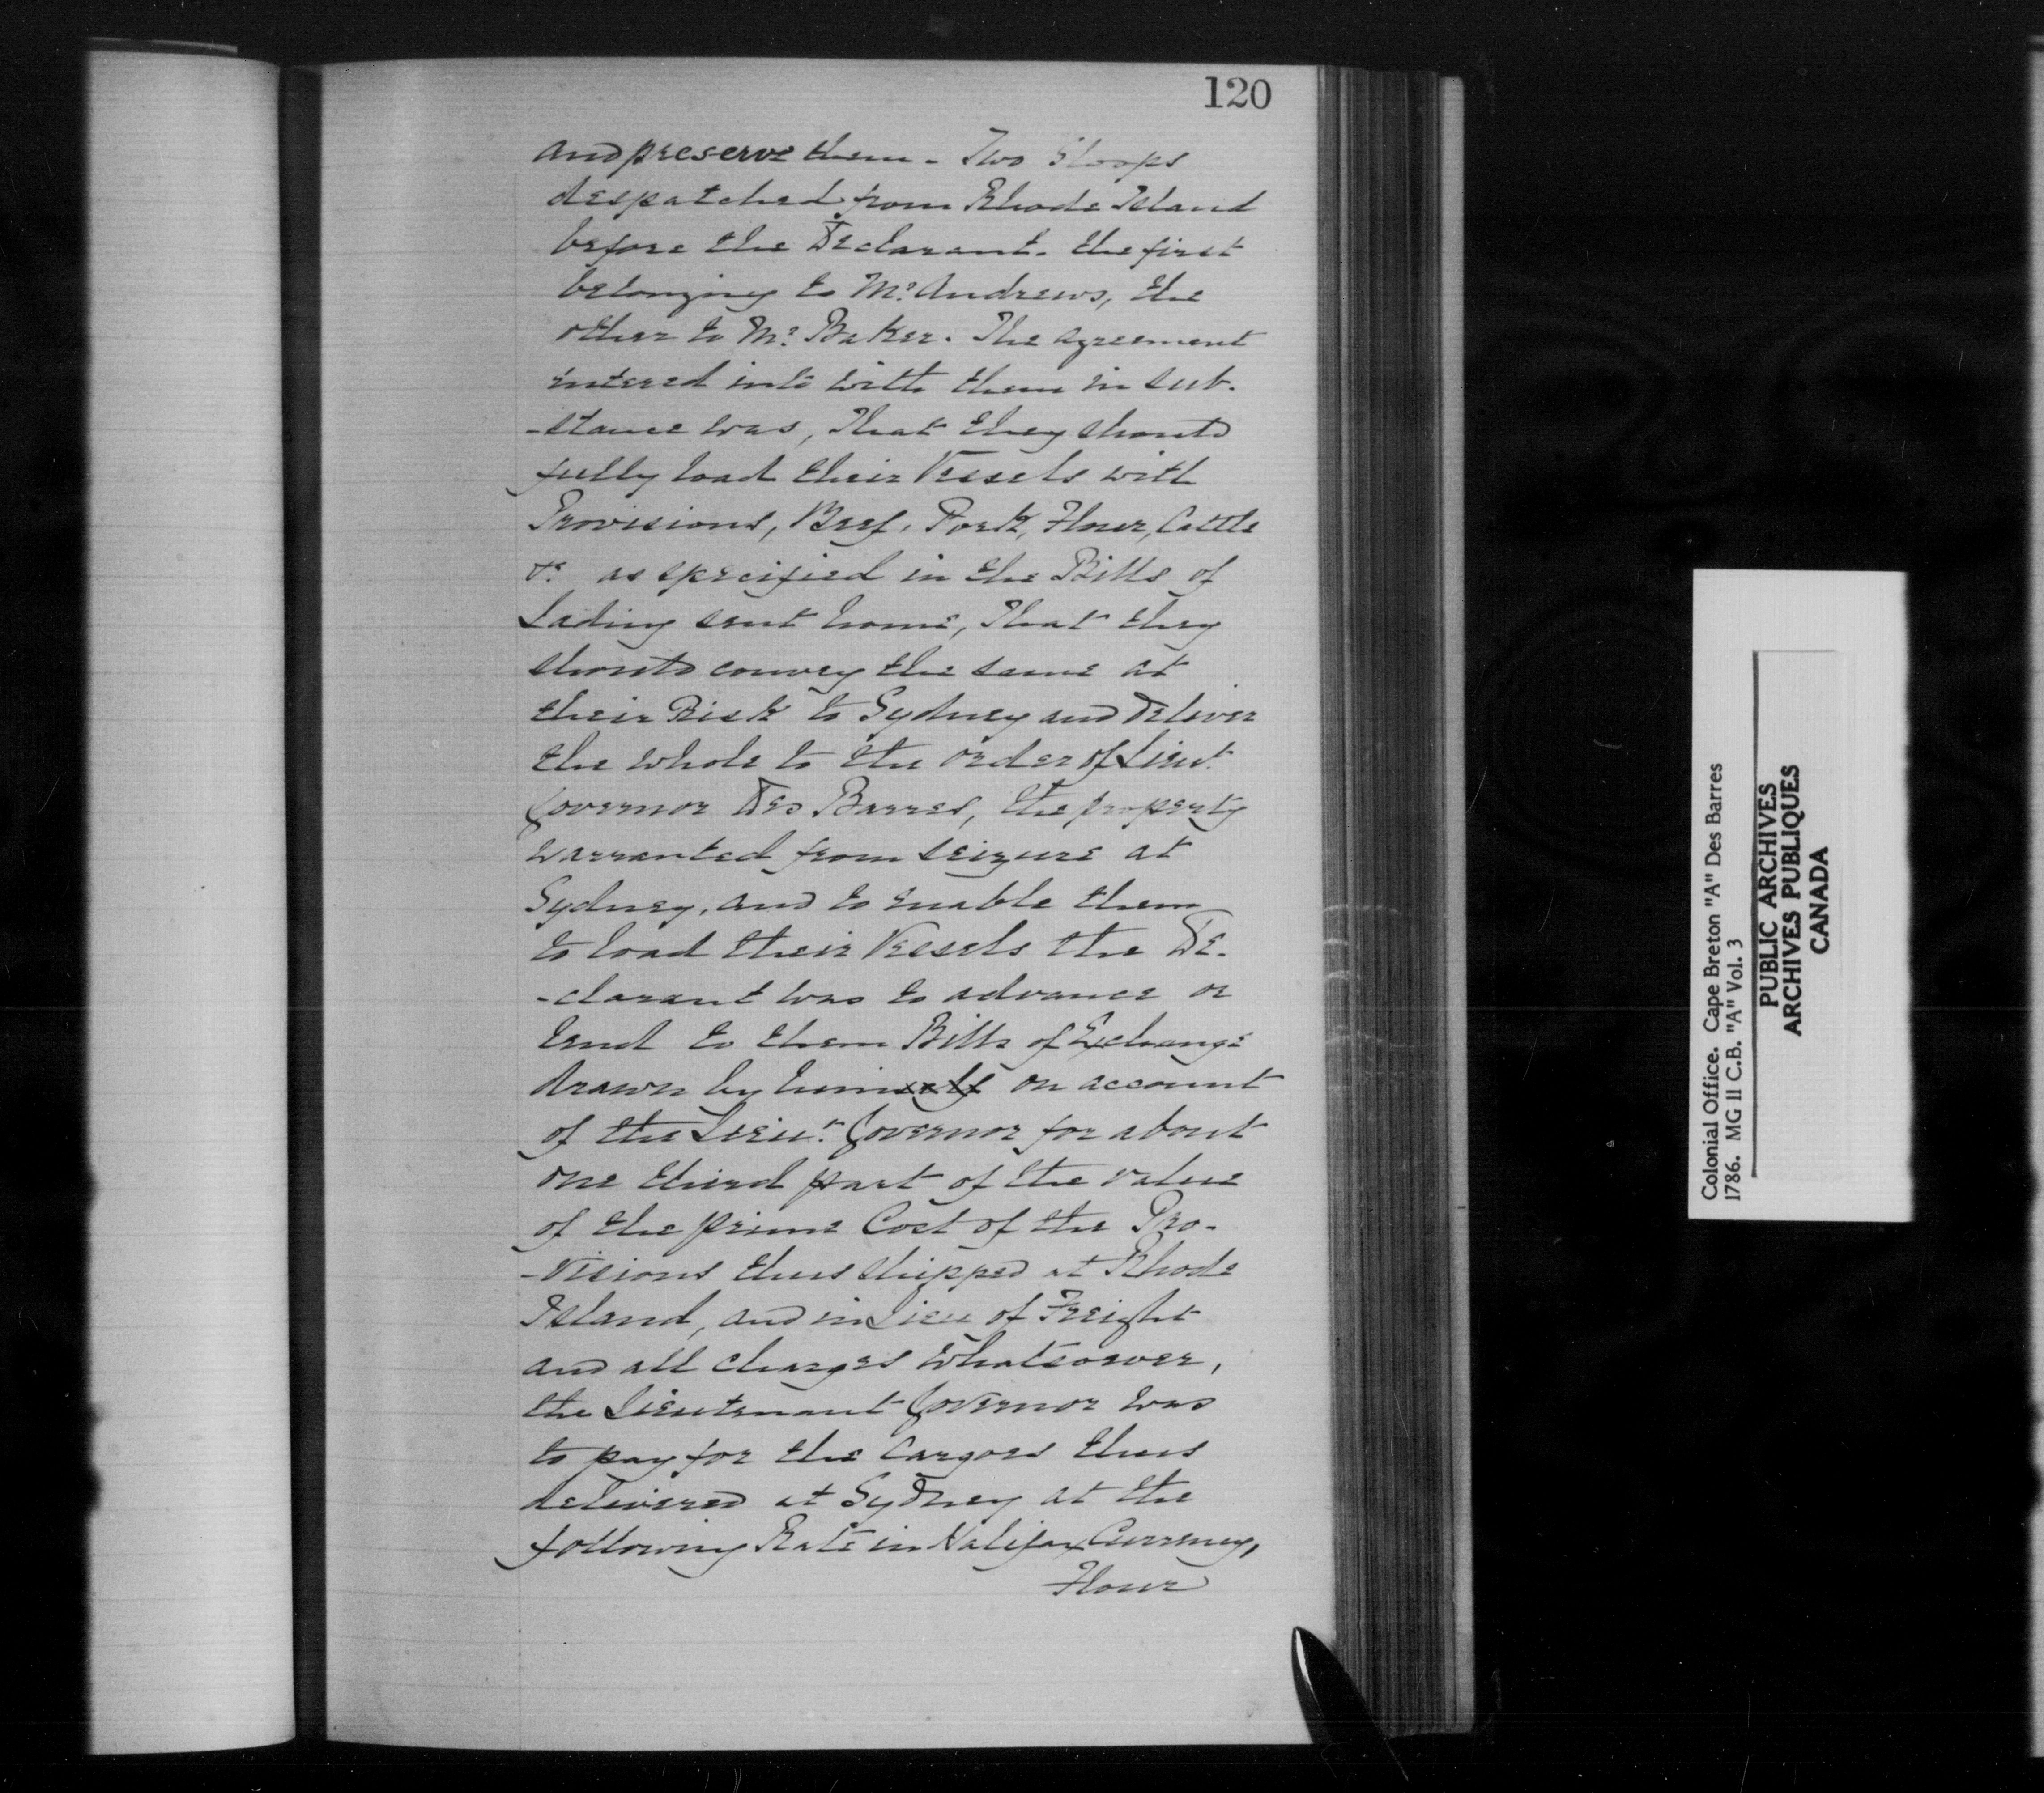 120
and preserve them - Two Sloops
despatched from Rhode Island
before the Declarant. the first
belonging to Mr. Andrews, the
other to Mr. Baker. The agreement
entered into with them in sub-
-stance was, That they should
fully load their Vessels with
Provisions, Beef, Pork, Flour, Cattle
&c. as specified in the Bills of
Lading sent home, That they
should convey the same at
their Risk to Sydney and Deliver
the whole to the order of Lieut.
Governor Des Barres, the property
warranted from seizure at
Sydney, and to enable them
to load their Vessels the De-
-clarant was to advance or
lend to them Bills of Exchange
drawn by himself on account
of the Lieut. Governor for about
one third part of the value
of the prime Cost of the Pro-
-visions thus shipped at Rhode
Island, and in Lieu of Freight
and all charges whatsoever,
the Lieutenant Governor was
to pay for the cargoes thus
delivered at Sydney at the
following Rate in Halifax Currency,
Flour
Colonial Office. Cape Breton "A" Des Barres
1786. MG 11 C.B. "A" Vol. 3
PUBLIC ARCHIVES
ARCHIVES PUBLIQUES
CANADA